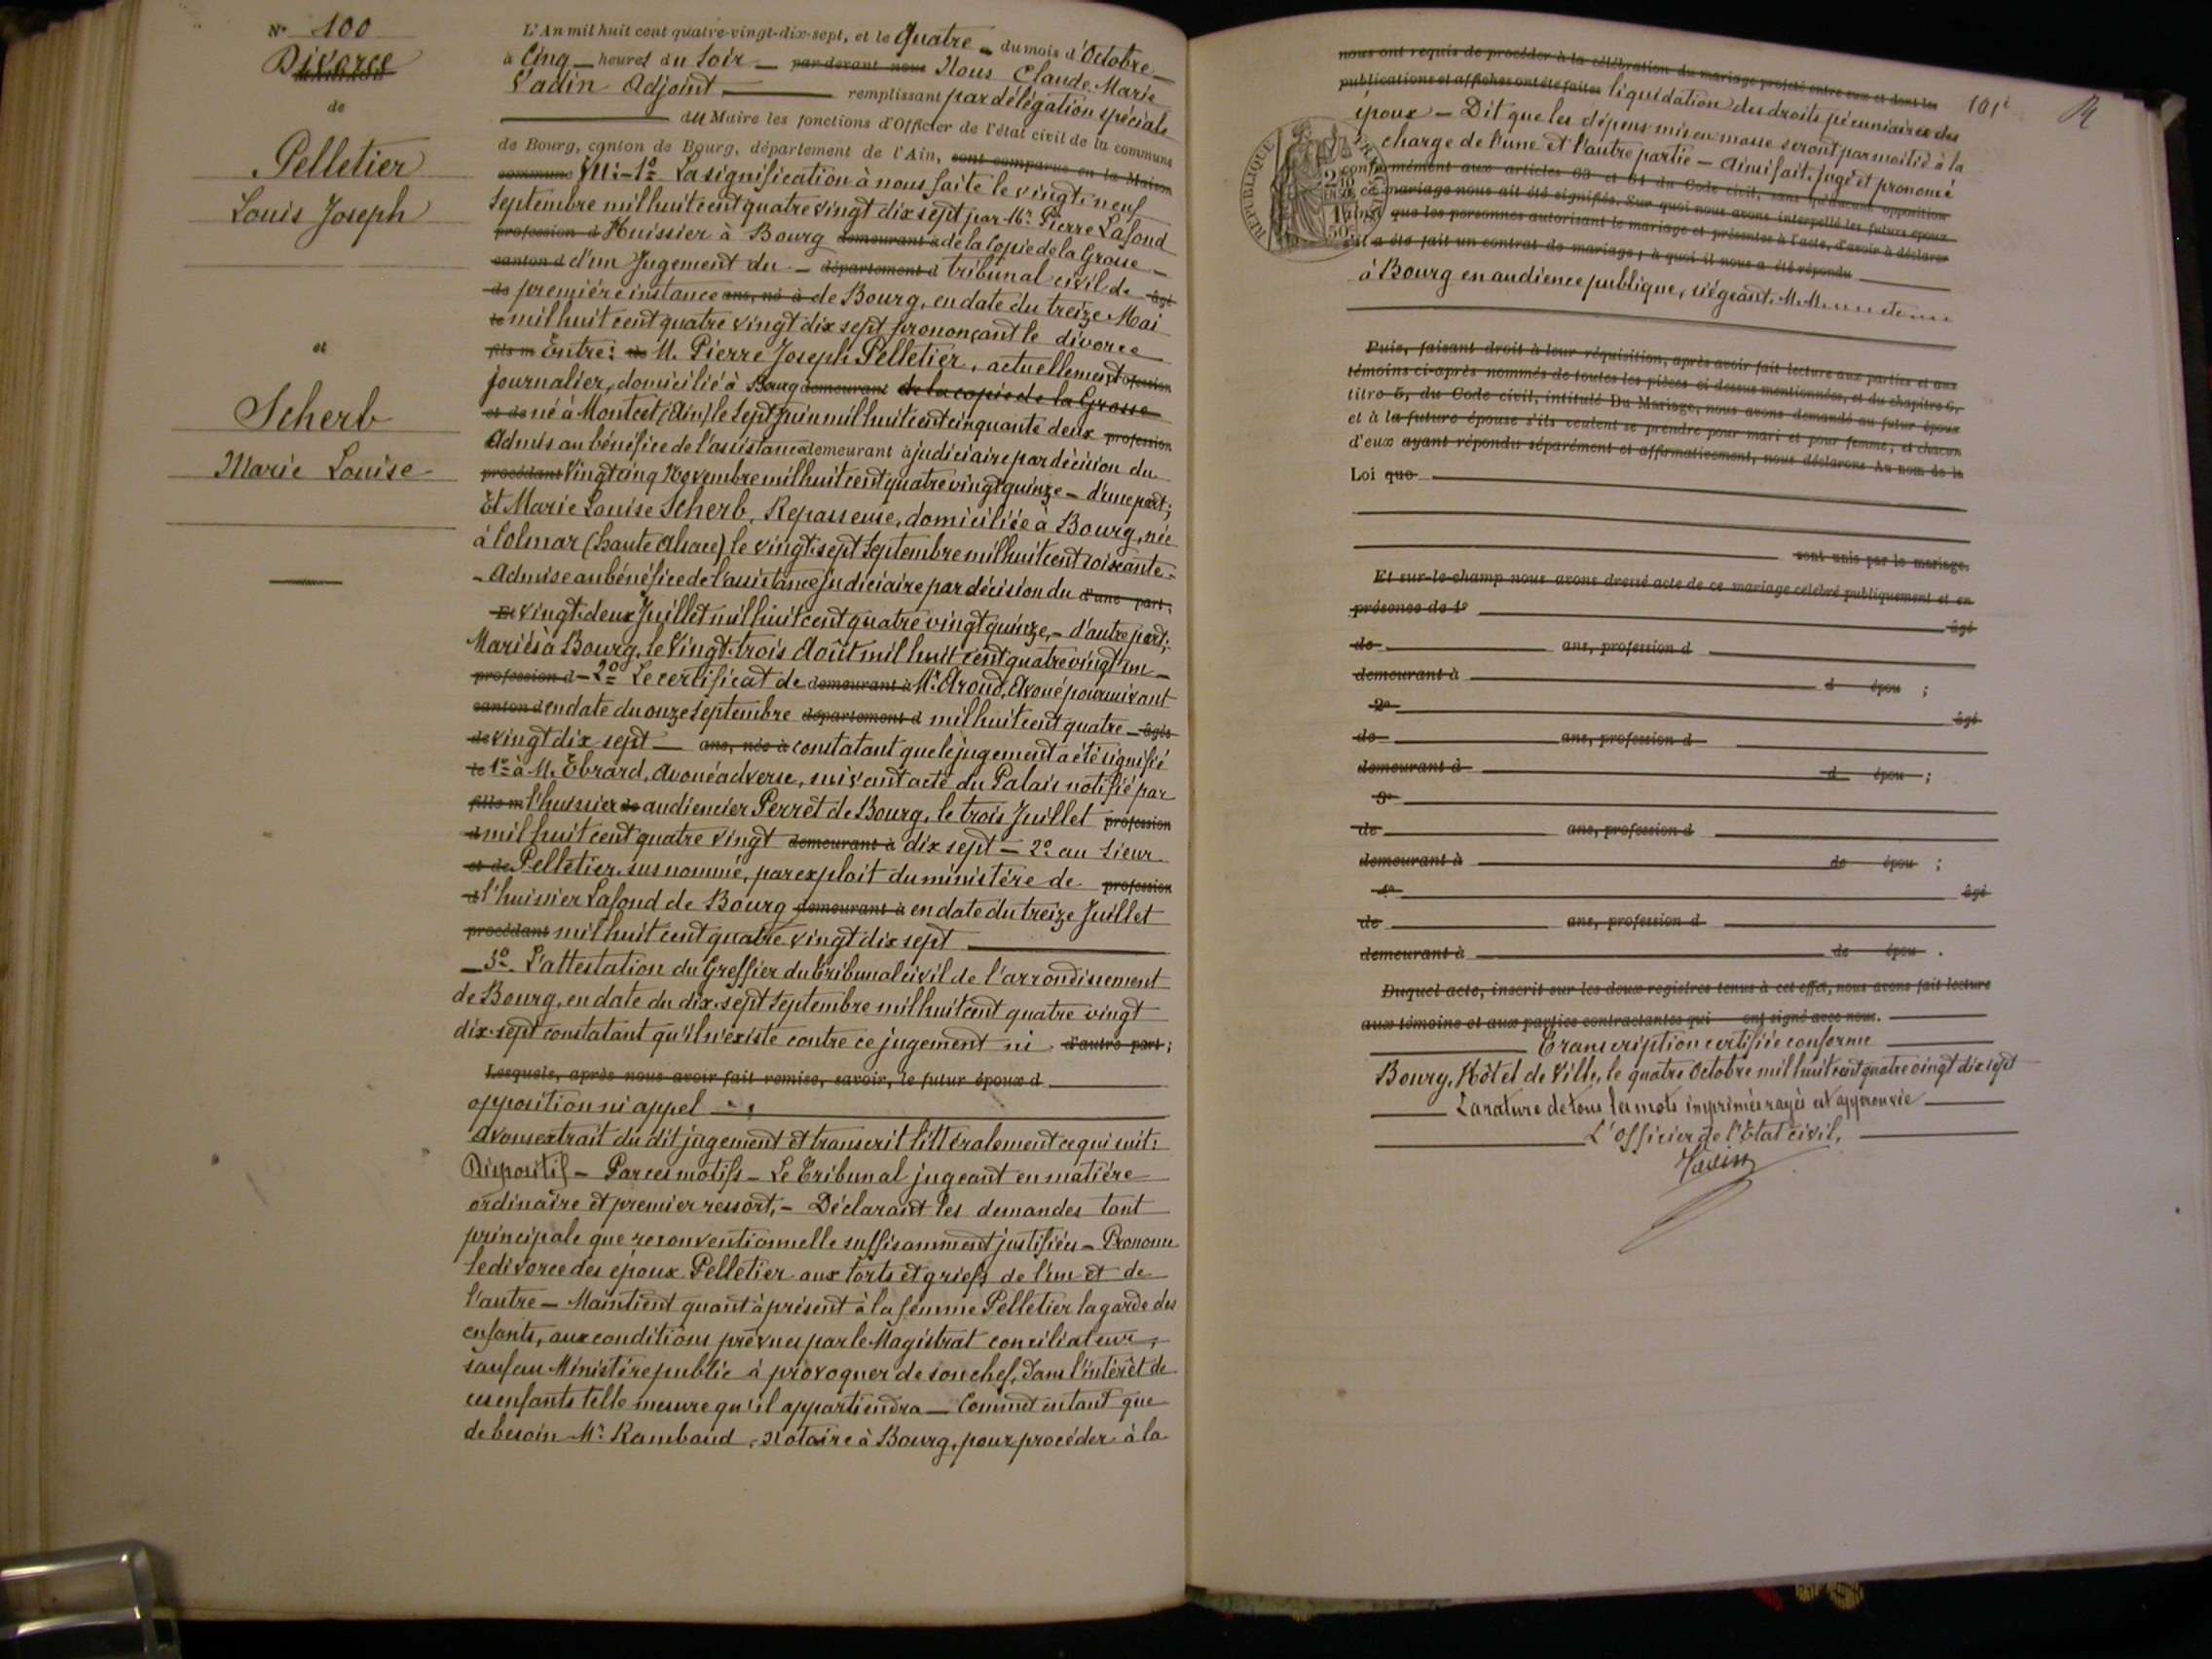 N° 100
Divorce
de
Pelletier
Louis Joseph
et
Scherb
Marie Louise
L'An mil huit cent quatre-vingt-dix-sept, et le Quatre du mois d'Octobre
à Cinq heures du Soir par devant nous Nous Claude Marie
Vadin Adjoint remplissant par délégation spéciale
du Maire les fonctions d'Officier de l'état civil de la commune
de Bourg, canton de Bourg, département de l'Ain, sont comparus en la Maison
commune Vu: - 1° La signification à nous faite le vingt neuf
Septembre mil huit cent quatre vingt dix sept par Mr. Pierre Lafond
profession d Huissier à Bourg demeurant à de la Copie de la Grosse
canton d d'un Jugement du - département d tribunal civil de âgé
de première instance ans, né à de Bourg, en date du treize Mai
le mil huit cent quatre vingt dix sept prononçant le divorce
fils m Entre: de M. Pierre Joseph Pelletier, actuellement profession
journalier, domicilié à Bourg demeurant de la copie de la Grosse
et de né à Montcet (Ain) le Sept Juin mil huit cent cinquante deux profession
Admis au bénéfice de l'assistance demeurant à judiciaire par décision du
procédant Vingt cinq Novembre mil huit cent quatre vingt quinze - d'une part;
Et Marie Louise Scherb, Repasseuse, domiciliée à Bourg, née
à Colmar (haute Alsace) le vingt sept Septembre mil huit cent soixante -
- Admise au bénéfice de l'assistance judiciaire par décision du d'une part;
Et vingt deux Juillet mil huit cent quatre vingt quinze, - d'autre part;
Mariés à Bourg, le Vingt trois Août mil huit cent quatre vingt un -
profession d - 2° Le certificat de demeurant à Mr Aroud, Avoué poursuivant
canton d en date du onze Septembre département d mil huit cent quatre - âgée
de vingt dix sept - ans, née à constatant que le jugement a été signifié
le 1° à M. Ebrard, Avoué adverse, suivant acte du Palais notifié par
fille m l'huissier de audiencier Perret de Bourg, le trois Juillet profession
d mil huit cent quatre vingt demeurant à dix sept - 2° au Sieur
et de Pelletier, sus nommé, par exploit du ministère de profession
d l'huissier Lafond de Bourg demeurant à en date du treize Juillet
procédant mil huit cent quatre vingt dix sept
- 3° L'attestation du Greffier du Tribunal civil de l'arrondissement
de Bourg, en date du dix-sept Septembre mil huit cent quatre vingt
dix-sept constatant qu'il n'existe contre ce jugement ni d'autre part;
Lesquels, après nous avoir fait remise, savoir, le futur époux d
opposition ni appel
Avons extrait du dit jugement et transcrit littéralement ce qui suit:
Dispositif - Par ces motifs - Le Tribunal jugeant en matière
ordinaire et premier ressort, - Déclarant les demandes tant
principale que reconventionnelle suffisamment justifiées - Prononce
le divorce des époux Pelletier aux torts et griefs de l'un et de
l'autre - Maintient quant à présent à la femme Pelletier la garde des
enfants, aux conditions prévues par le Magistrat conciliateur,
sauf au Ministère public à provoquer de son chef, dans l'intérêt de
ces enfants telle mesure qu'il appartiendra - Commet en tant que
de besoin Mr. Rambaud, Notaire à Bourg, pour procéder à la
101e
nous ont requis de procéder à la célébration du mariage projeté entre eux et dont les
publications et affiches ont été faites liquidation des droits pécuniaires des
époux - Dit que les dépens mis en masse seront par moitié à la
charge de l'une et l'autre partie - Ainsi fait, jugé et prononcé
RÉPUBLIQUE FRANÇAISE
conformément aux articles 63 et 64 du Code civil, sans qu'aucune opposition
ce mariage nous ait été signifiés. Sur quoi nous avons interpellé les futurs époux
que les personnes autorisant le mariage et présentes à l'acte, d'avoir à déclarer
s'il a été fait un contrat de mariage; à quoi il nous a été répondu
à Bourg en audience publique, siégeant, M.M.
Puis, faisant droit à leur réquisition, après avoir fait lecture aux parties et aux
témoins ci-après nommés de toutes les pièces ci dessus mentionnées, et du chapitre 6,
titre 5, du Code civil, intitulé Du Mariage, nous avons demandé au futur époux
et à la future épouse s'ils veulent se prendre pour mari et pour femme; et chacun
d'eux ayant répondu séparément et affirmativement, nous déclarons Au nom de la
Loi que
sont unis par le mariage.
Et sur-le-champ nous avons dressé acte de ce mariage célébré publiquement et en
présence de 1° âgé
de ans, profession d
demeurant à d épou ;
2° âgé
de ans, profession d
demeurant à d épou ;
3°
de ans, profession d
demeurant à de épou ;
4° âgé
de ans, profession d
demeurant à de épou .
Duquel acte, inscrit sur les deux registres tenus à cet effet, nous avons fait lecture
aux témoins et aux parties contractantes qui ont signé avec nous.
Transcription certifiée conforme
Bourg, Hôtel de Ville, le quatre Octobre mil huit cent quatre vingt dix sept
La rature de tous les mots imprimés rayés est approuvée
L'Officier de l'Etat civil,
Vadin